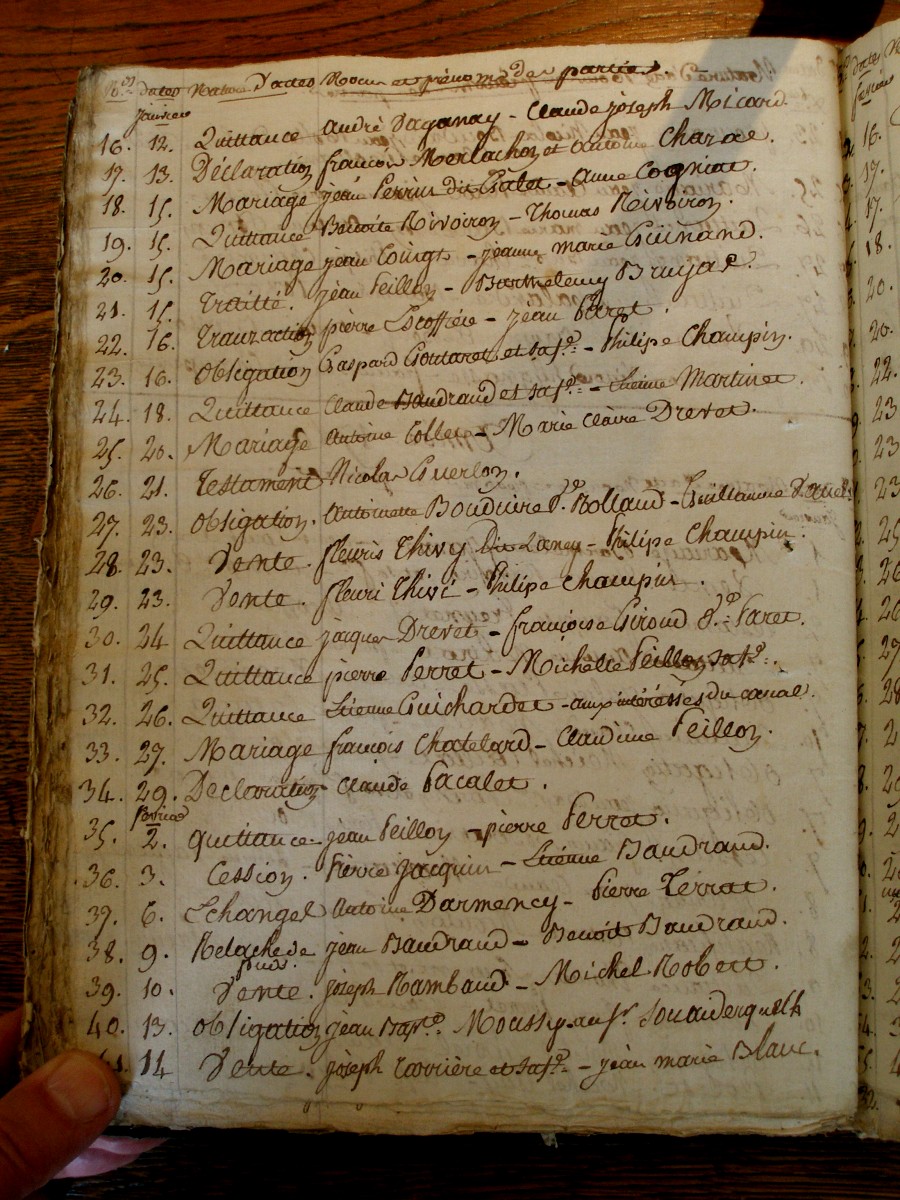 N.os Dates Nature D'actes Noms et prénoms des parties
janvier
16. 12. Quittance André Daganay - Claude joseph Micard.
17. 13. Déclaration françois Merlachon et Antoine Charae.
18. 15. Mariage jean Perrin dit Galet - Anne Cogniat.
19. 15. Quittance Benoite Rivoiron - Thomas Rivoiron.
20. 15. Mariage jean Coingt - jeanne marie Guinand.
21. 15. Traitté. jean Feillon - Barthelemy Bruyas.
22. 16. Tranzaction pierre Escoffiée - jean Perot.
23. 16. Obligation Gaspard Goutaret et sa fe. - Philipe Champin.
24. 18. Quittance Claude Baudrand et sa fe. - Martinet.
25. 20. Mariage Antoine Collet - Marie Claire Drevet.
26. 21. Testament Nicolas Guerlon.
27. 23. obligation. Antoinette Ve. Rolland - Guillaume
28. 23. Vente. fleuris Thivy Dit Laney - Philipe Champin.
29. 23. Vente. fleuri Thivi - Philipe Champin.
30. 24 Quittance jacques Drevet - françoise Giroud Ve. Faret.
31. 25. Quittance pierre Perret - Michelle Feillon sa fe.
32. 26. Quittance Etienne Guichardet - aux intéréssés du canal.
33. 27. Mariage françois Chatelard - Claudine Feillon.
34. 29. Declaration Claude Pacalet.
fevrier
35. 2. quittance jean Feillon - pierre Perrot.
36. 3. Cession. Pierre Jacquin - Etienne Baudrand.
37. 6. Echange Antoine Darmency - Pierre Terrat.
38. 9. Relache de jean Baudrand - Benoit Baudrand.
fonds.
39. 10. Vente. joseph Rambaud - Michel Robert.
40. 13. obligation jean Bapte. Moussy
14 Vente. joseph et sa fe. - jean marie Blanc.
fevrier
16.
17.
17.
18.
20.
20.
22.
23
23
23
25
26
26
27
28